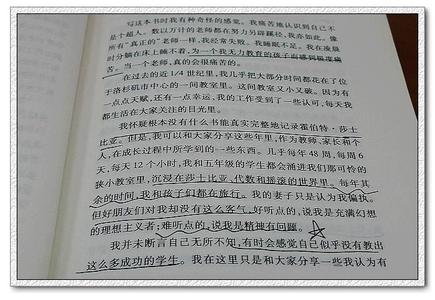 写这本书时我有种奇怪的感觉。我痛苦地认识到自己不
是个超人。数以万计的老师都在努力另辟蹊径,我亦如此。像
所有“真正的”老师一样,我经常失败。我睡眠不足。我在凌晨
时分躺在床上睡不着,为一个我无力教育的孩子而感到极度痛
苦。当一个老师,真的会很痛苦的。
在过去的近1/4世纪里,我几乎把大部分时间都花在了位
于洛杉矶市中心的一间教室里。这间教室又小又破。因为有
一点点天赋,还有一点幸运,我的工作受到了一些认可,每天我
都生活在大家关注的目光里。
我怀疑根本没有什么书能真实完整地记录霍伯特·莎士
比亚。但是,我可以和大家分享这些年里,作为教师、家长和个
人,在成长过程中所学到的一些东西。几乎每年48周,每周6
天,每天12个小时,我和五年级的学生都会涌进我们那可怜的
狭小教室里,沉浸在莎士比亚、代数和摇滚的世界里。每年其
余的时间,我和孩子们都在旅行。我的妻子只是认为我偏执。
但好朋友们对我却没有这么客气,好听点的,说我是充满幻想
的理想主义者;难听点的,说我是精神有问题。
我并未断言自己无所不知,有时会感觉自己似乎没有教出
这么多成功的学生。我在这里只是和大家分享一些我认为有